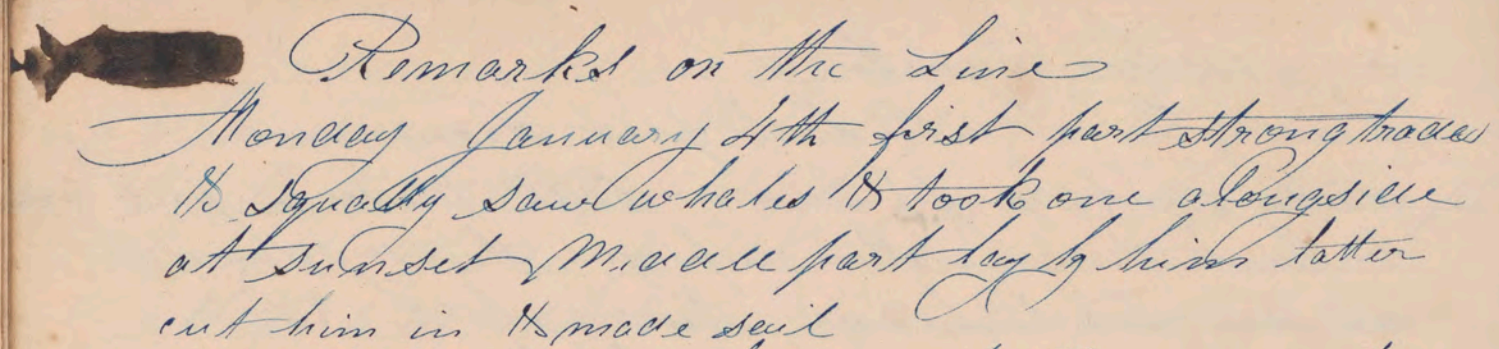 Remarks on the Line
Monday January 4th first part strong trades
& squally saw whales & took one alongside
at sunset Middle part lay by him latter
cut him in & made sail